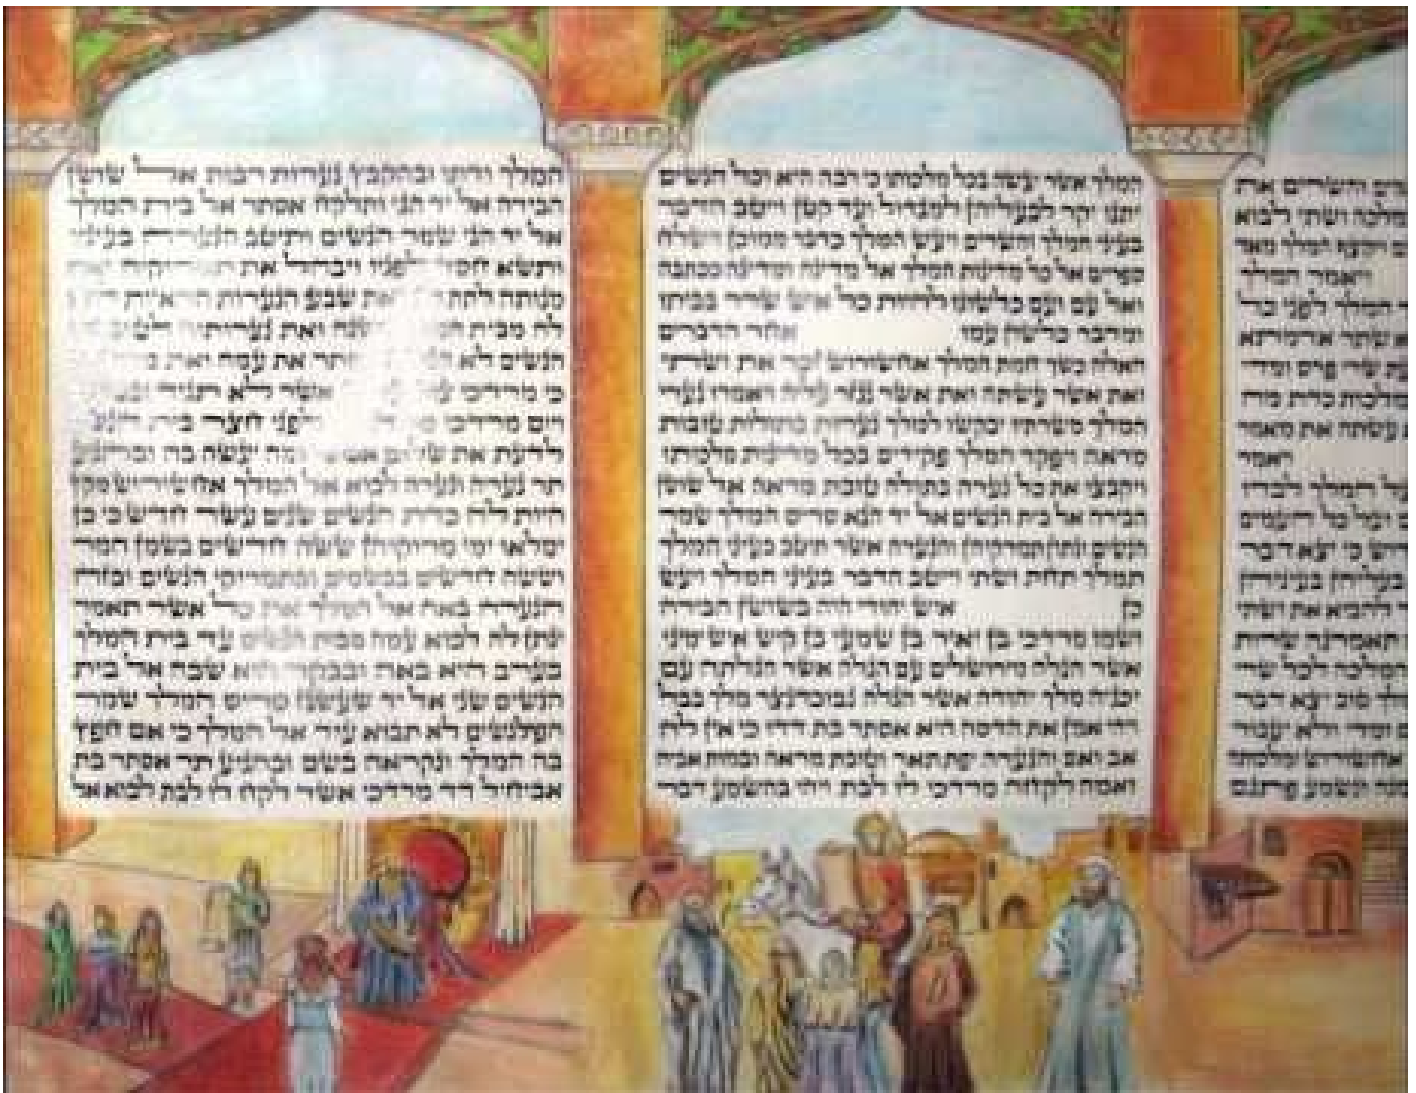 והשרים את
ושתי לבוא
ויקצף המלך מאד
ויאמר המלך
המלך לפני כל
שתר אדמתא
שרי פרס ומדי
כדת מה
עשתה את מאמר
ויאמר
המלך לבדו
ועל כל העמים
כי יצא דבר
בעליהן בעיניהן
להביא את ושתי
תאמרנה שרות
המלכה לכל שרי
טוב יצא דבר
ומדי ולא יעבור
אחשורוש ומלכותה
ונשמע פתגם
המלך אשר יעשה בכל מלכותו כי רבה היא וכל הנשים
יתנו יקר לבעליהן למגדול ועד קטן וייטב הדבר
בעיני המלך והשרים ויעש המלך כדבר ממוכן וישלח
ספרים אל כל מדינות המלך אל מדינה ומדינה ככתבה
ואל עם ועם כלשונו להיות כל איש שרר בביתו
ומדבר כלשון עמו אחר הדברים
האלה כשך חמת המלך אחשורוש זכר את ושתי
ואת אשר עשתה ואת אשר נגזר עליה ויאמרו נערי
המלך משרתיו יבקשו למלך נערות בתולות טובות
מראה ויפקד המלך פקידים בכל מדינות מלכותו
ויקבצו את כל נערה בתולה טובת מראה אל שושן
הבירה אל בית הנשים אל יד הגא סריס המלך שמר
הנשים ונתון תמרקיהן והנערה אשר תיטב בעיני המלך
תמלך תחת ושתי וייטב הדבר בעיני המלך ויעש
כן איש יהודי היה בשושן הבירה
ושמו מרדכי בן יאיר בן שמעי בן קיש איש ימיני
אשר הגלה מירושלים עם הגלה אשר הגלתה עם
יכניה מלך יהודה אשר הגלה נבוכדנצר מלך בבל
ויהי אמן את הדסה היא אסתר בת דדו כי אין לה
אב ואם והנערה יפת תאר וטובת מראה ובמות אביה
ואמה לקחה מרדכי לו לבת ויהי בהשמע דבר
המלך ודתו ובהקבץ נערות רבות אל שושן
הבירה אל יד הגי ותלקח אסתר אל בית המלך
אל יד הגי שמר הנשים ותיטב הנערה בעיניו
ותשא חסד לפניו ויבהל את תמרוקיה ואת
מנותה לתת את שבע הנערות הראיות
לה מבית ואת נערותיה לטוב
הנשים לא את עמה ואת
כי מרדכי אשר לא תגיד
ויום מרדכי לפני חצר בית
לדעת את ומה יעשה בה ובהגיע
תר נערה ונערה לבוא אל המלך אחשורוש מקץ
היות לה כדת הנשים שנים עשר חדש כי כן
ימלאו ימי מרוקיהן ששה חדשים בשמן המר
וששה חדשים בבשמים ובתמרוקי הנשים ובזה
הנערה באה אל המלך את כל אשר תאמר
ינתן לה לבוא עמה מבית הנשים עד בית המלך
בערב היא באה ובבקר היא שבה אל בית
הנשים שני אל יד שעשגז סריס המלך שמר
הפילגשים לא תבוא עוד אל המלך כי אם חפץ
בה המלך ונקראה בשם ובהגיע תר אסתר בת
אביחיל דד מרדכי אשר לקח לו לבת לבוא אל